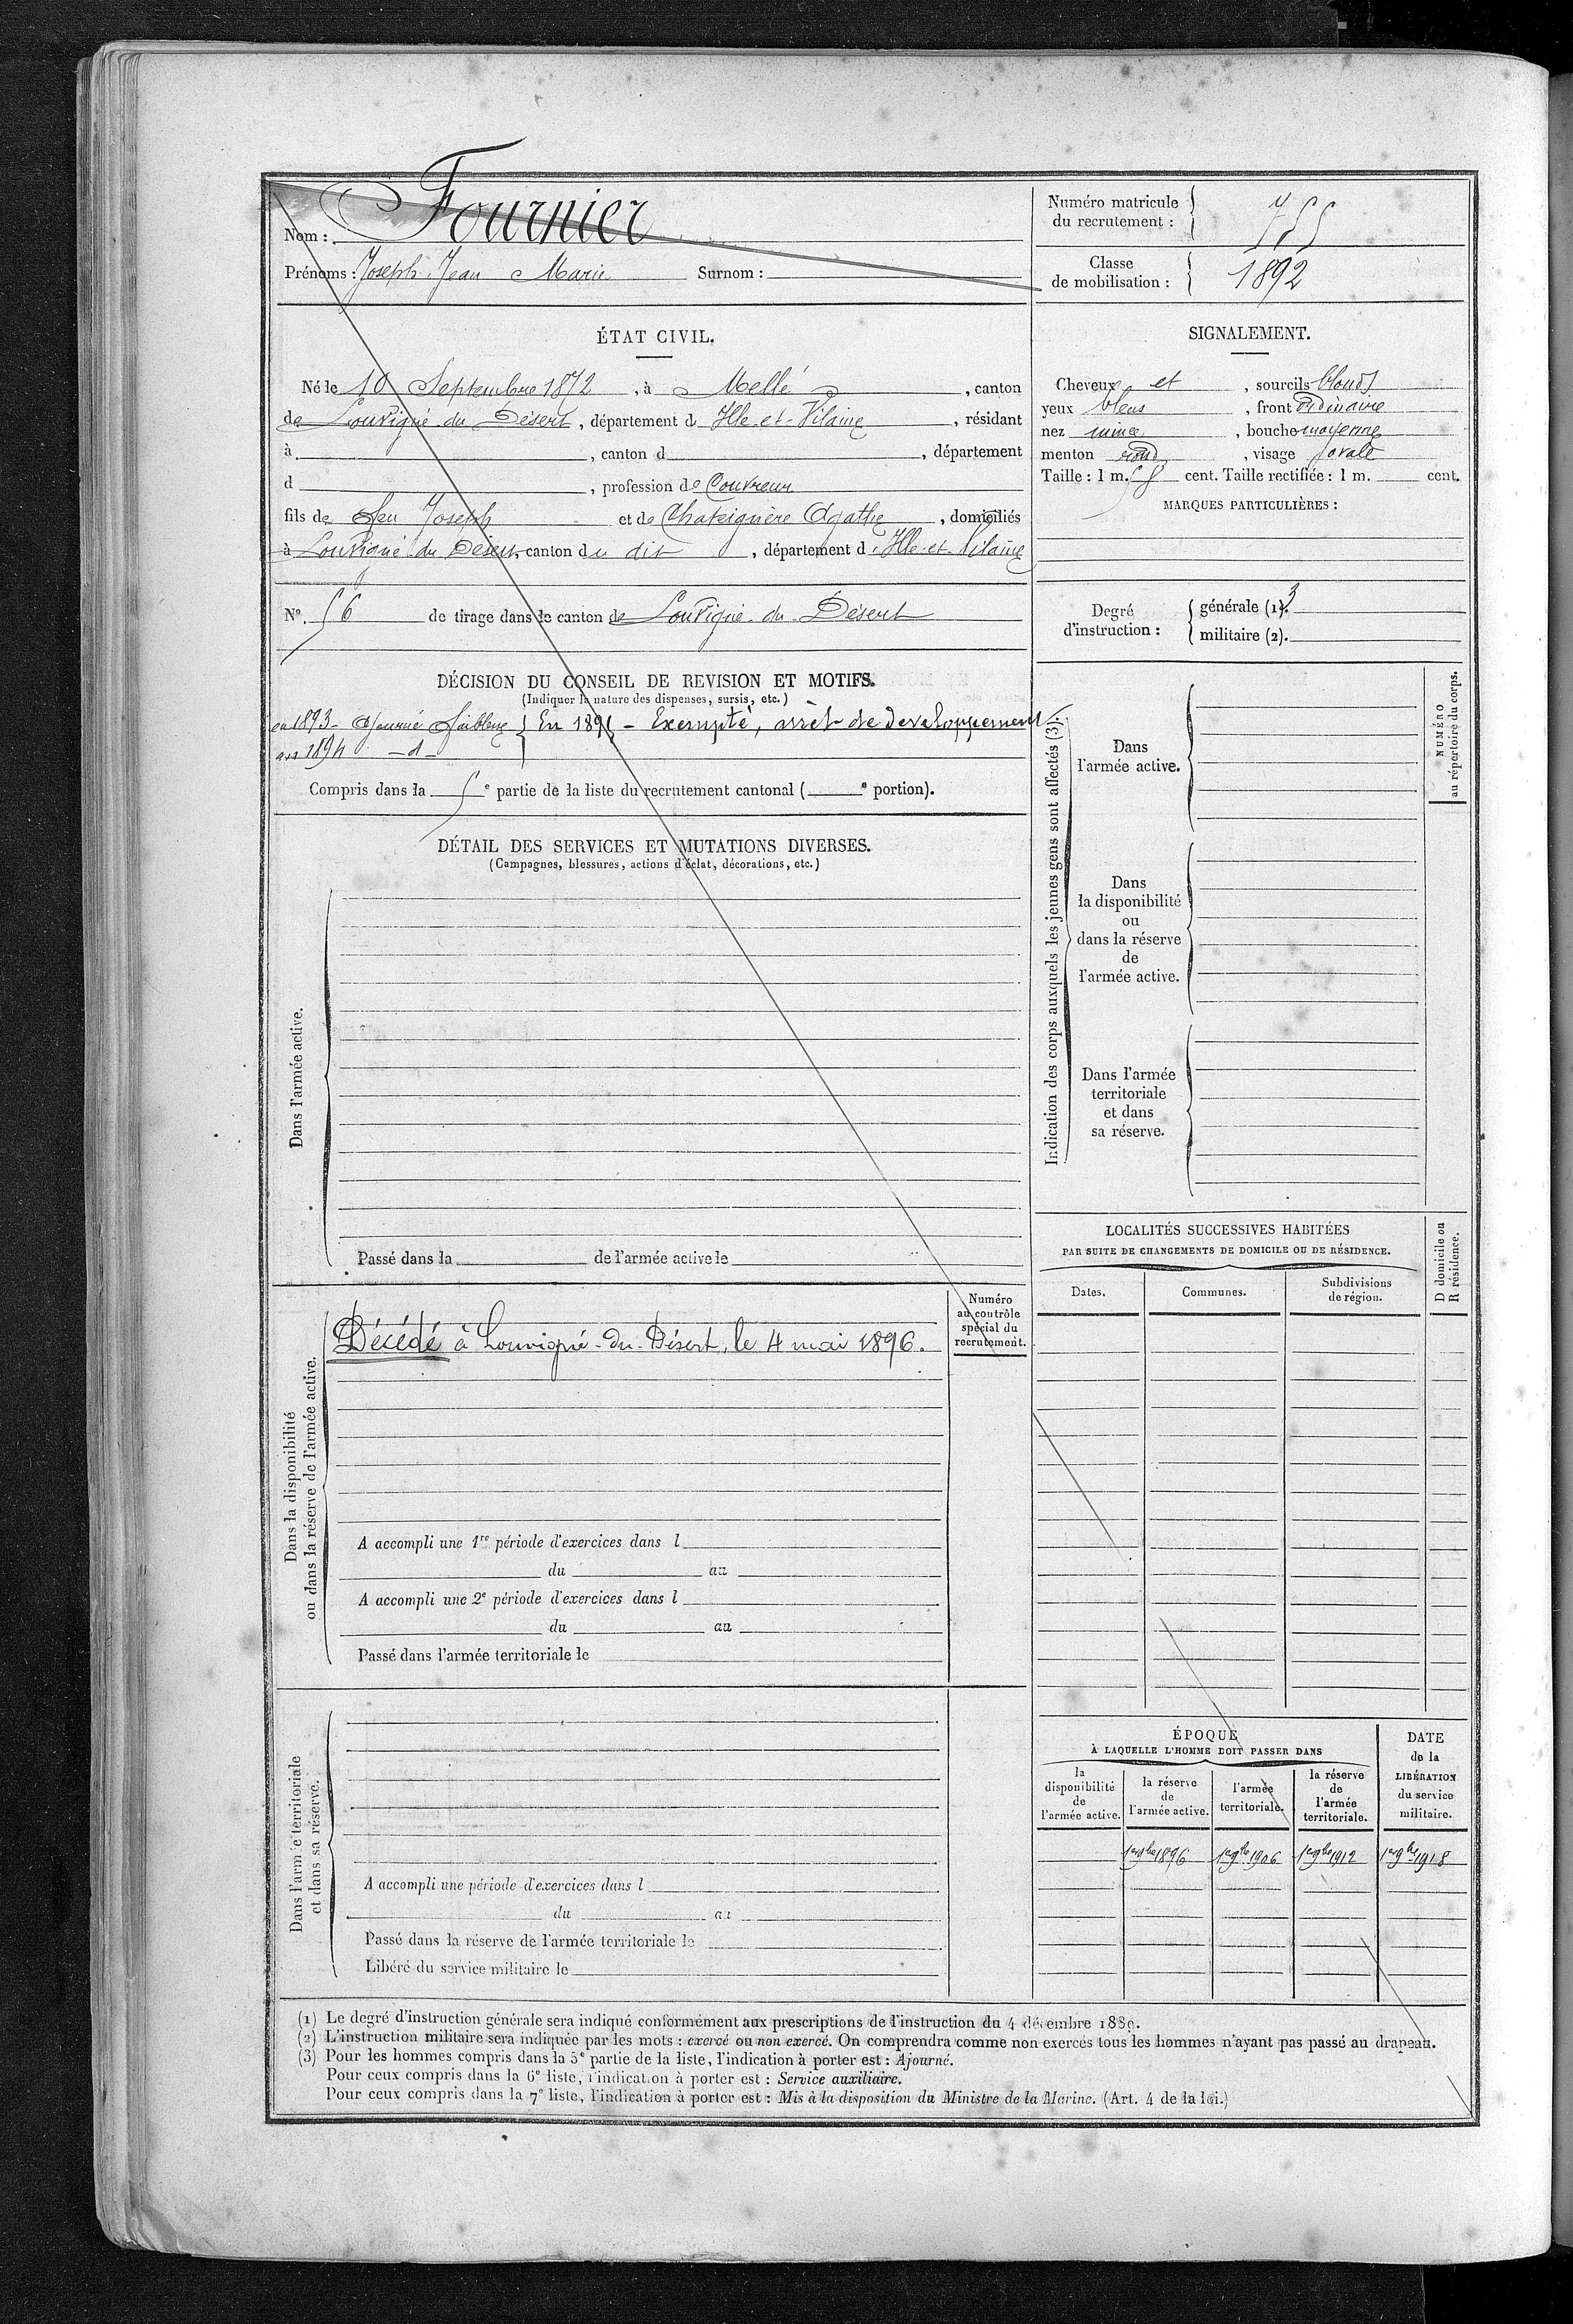 Nom : Fournier
Prénoms : Joseph Jean Marie Surnom :
Numéro matricule
du recrutement : 755
Classe
de mobilisation : 1892
ÉTAT CIVIL.
Né le 10 Septembre 1872, à Mellé, canton
de Louvigné du Désert, département d Ille-et-Vilaine, résidant
à , canton d , département
d , profession de Couvreur
fils de feu Joseph et de Chateignère Agathe, domiciliés
à Louvigné du Désert, canton du dit, département d Ille-et-Vilaine
N°. 56 de tirage dans le canton de Louvigné-du-Désert
DÉCISION DU CONSEIL DE REVISION ET MOTIFS.
(Indiquer la nature des dispenses, sursis, etc.)
en 1893 - Ajourné faiblesse } En 1895 - Exempté, arrêt de developpement.
1894 - d -
Compris dans la 5e partie de la liste du recrutement cantonal ( e portion).
DÉTAIL DES SERVICES ET MUTATIONS DIVERSES.
(Campagnes, blessures, actions d'éclat, décorations, etc.)
Dans l'armée active.
Passé dans la de l'armée active le
Numéro
au contrôle
spécial du
recrutement.
Dans la disponibilité
ou dans la réserve de l'armée active.
Décédé à Louvigné-du-Désert, le 4 mai 1896.
A accompli une 1re période d'exercices dans l
du au
A accompli une 2e période d'exercices dans l
du au
Passé dans l'armée territoriale le
Dans l'armée territoriale
et dans sa réserve.
A accompli une période d'exercices dans l
du au
Passé dans la réserve de l'armée territoriale le
Libéré du service militaire le
SIGNALEMENT.
Cheveux et , sourcils blonds
yeux bleus , front ordinaire
nez mince , bouche moyenne
menton rond , visage ovale
Taille : 1 m. 58 cent. Taille rectifiée : 1 m. cent.
MARQUES PARTICULIÈRES :
Degré
d'instruction :
générale (1). 3
militaire (2).
Indication des corps auxquels les jeunes gens sont affectés (3).
Dans
l'armée active.
Dans
la disponibilité
ou
dans la réserve
de
l'armée active.
Dans l'armée
territoriale
et dans
sa réserve.
NUMÉRO
au répertoire du corps.
LOCALITÉS SUCCESSIVES HABITÉES
PAR SUITE DE CHANGEMENTS DE DOMICILE OU DE RÉSIDENCE.
Dates. Communes. Subdivisions
de région.
D domicile ou
R résidence.
ÉPOQUE
À LAQUELLE L'HOMME DOIT PASSER DANS
la
disponibilité
de
l'armée active.
la réserve
de
l'armée active.
l'armée
territoriale.
la réserve
de
l'armée
territoriale.
DATE
de la
LIBÉRATION
du service
militaire.
1er 9bre 1896 1er 9bre 1906 1er 9bre 1912 1er 9bre 1918
(1) Le degré d'instruction générale sera indiqué conformément aux prescriptions de l'instruction du 4 décembre 1889.
(2) L'instruction militaire sera indiquée par les mots : exercé ou non exercé. On comprendra comme non exercés tous les hommes n'ayant pas passé au drapeau.
(3) Pour les hommes compris dans la 5e partie de la liste, l'indication à porter est : Ajourné.
Pour ceux compris dans la 6e liste, l'indication à porter est : Service auxiliaire.
Pour ceux compris dans la 7e liste, l'indication à porter est : Mis à la disposition du Ministre de la Marine. (Art. 4 de la loi.)